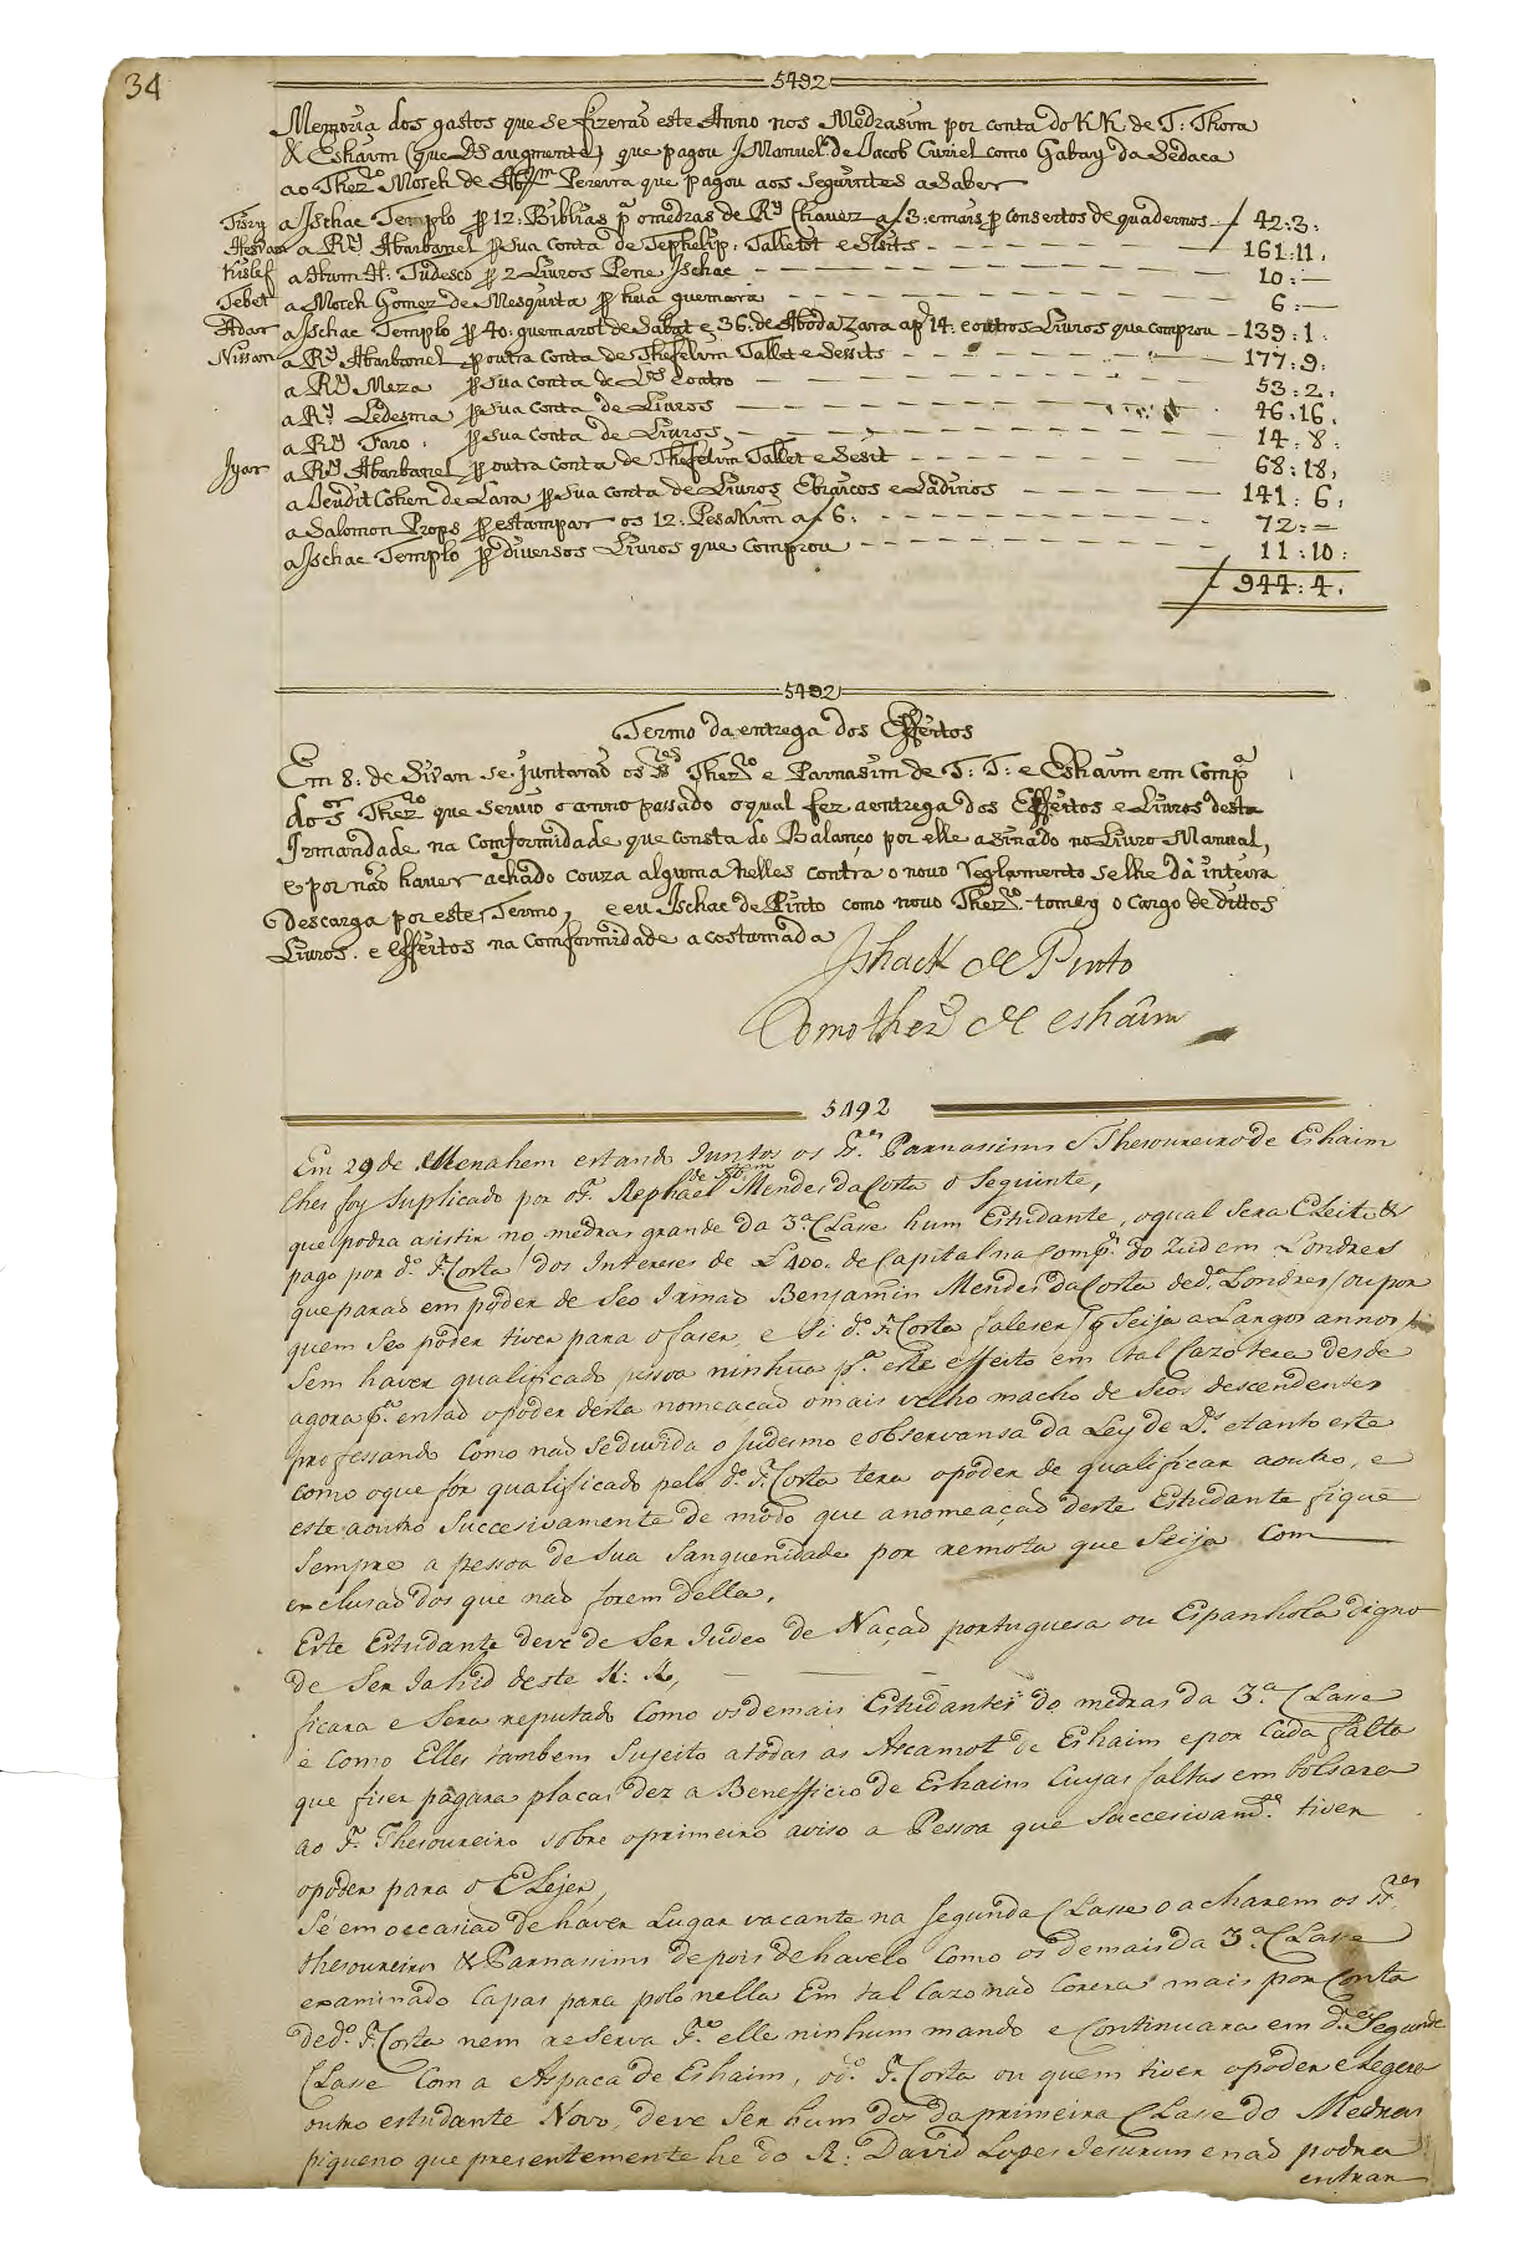 34
5492
Memoria dos gastos que se fizeraõ este Anno nos Medrasim por conta do KK de T: Thora
& Eshaim (que D.s augmente) que pagou J Manuel de Jacob Curiel como Gabay da Sedaca
ao Thez.ro Moseh de Ab.m Pereira que pagou aos seguintes a Saber
Tisry a Ischac Templo p 12: Biblias p.a o medras de R.y Chavez a f 3: e mais p consertos de quadernos - f 42:3:
Hesvan a R.y Abarbanel p sua conta de Tephelip: Talletot e Sisits - - - - 161:11.
Kislef a Tudesco p 2 Livros Pene Ischac - - - - 10:—
Tebet a Moseh Gomez de Mesquita p hua guemara - - - - 6:—
Adar a Ischac Templo p 40: guemarot de Sabat e 36: de Aboda Zara a p 14: e outros Livros que comprou - 139:1:
Nissan a R.y Abarbanel p outra conta de Thefelim Tallet e Sessits - - - - 177:9:
a R.y Meza p sua conta de L.os e outro - - - - 53:2.
a R.y Ledesma p sua conta de Livros - - - - 46:16.
a R.y Faro: p sua conta de Livros - - - - 14:8:
Jyar a R.y Abarbanel p outra conta de Thefelim Tallet e Sesit - - - - 68:18,
a Jeudit Cohen de Lara p sua conta de Livros Ebraicos e Ladinos - - - - 141:6,
a Salomon Props p estampar os 12: Pesakim a f 6: - - - - 72:=
a Ischac Templo p diversos Livros que comprou - - - - 11:10:
f 944:4.
5492
Termo da entrega dos Effeitos
Em 8: de Sivan se juntaraõ os S.res Thez.ro e Parnasim de T: T: e Eshaim em Comp.a
do S.or Thez.ro que servio o anno passado o qual fez a entrega dos Effeitos e Livros desta
Irmandade na Comformidade que consta do Balanço por elle asinado no Livro Manual,
e por naõ haver achado couza alguma nelles contra o novo Reglamento se lhe dà inteira
descarga por este Termo, e eu Ischac de Pinto como novo Thez.ro tomey o Cargo de dittos
Livros. e effeitos na Comformidade acostumada
Ishack de Pinto
Como thez.o de eshaim
5492
Em 29 de Menahem estando Juntos os S.res Parnassims e Thesoureiro de Eshaim
de Ab.m
lhes foy suplicado por o S.r Rephael Mendes da Costa o Seguinte,
que podra asistir no medras grande da 3.a Classe hum Estudante, o qual sera Eleito &
pago por d.o S.r Costa dos Intereses de £ 400. de Capital na Comp.a do Zud em Londres
que paraõ em poder de Seo Irmaõ Benjamin Mendes da Costa de d.a Londres / ou por
quem Seo poder tiver para o faser, e Si d.o S.r Costa faleser / q Seija a Largos annos /
Sem haver qualificado pessoa ninhũa p.a este effeito em tal Cazo tera desde
agora p.a entaõ o poder desta nomeaçaõ o mais velho macho de Seos descendentes
professando Como naõ se duvida o Judesmo e observansa da Ley de D.s e tanto este
Como o que for qualificado pelo d.o S.r Costa tera o poder de qualificar a outro, e
este a outro Succesivamente de modo que a nomeaçaõ deste Estudante fique
sempre a pessoa de Sua Sanguenidade por remota que Seija Com
exclusaõ dos que naõ forem della.
Este Estudante deve de Ser Judeo de Naçaõ portuguesa ou Espanhola digno
de Ser Jahid deste K: K,
ficara e Sera reputado Como os demais Estudantes do medras da 3.a Classe
e Como Elles tambem Sujeito a todas as Ascamot de Eshaim e por Cada falta
que fiser pagara placas dez a Benefficio de Eshaim Cujas faltas embolsara
ao S.r Thesoureiro sobre o primeiro aviso a Pessoa que Succesivam.te tiver
o poder para o Elejer,
Sé em occasiaõ de haver Lugar vacante na Segunda Classe o acharem os S.res
thesoureiro & Parnassims depois de havelo Como os demais da 3.a Classe
examinado Capas para polo nella Em tal Cazo naõ Corera mais por Conta
de d.o S.r Costa nem reserva S.re elle ninhum mando e Continuara em d.a Segunda
Classe Com a Aspaca de Eshaim, o d.o S.r Costa ou quem tiver o poder elegera
outro estudante Novo, deve Ser hum dos da primeira Classe do Medras
piqueno que presentemente he do R: David Lopes Jesurun e naõ podra
entrar